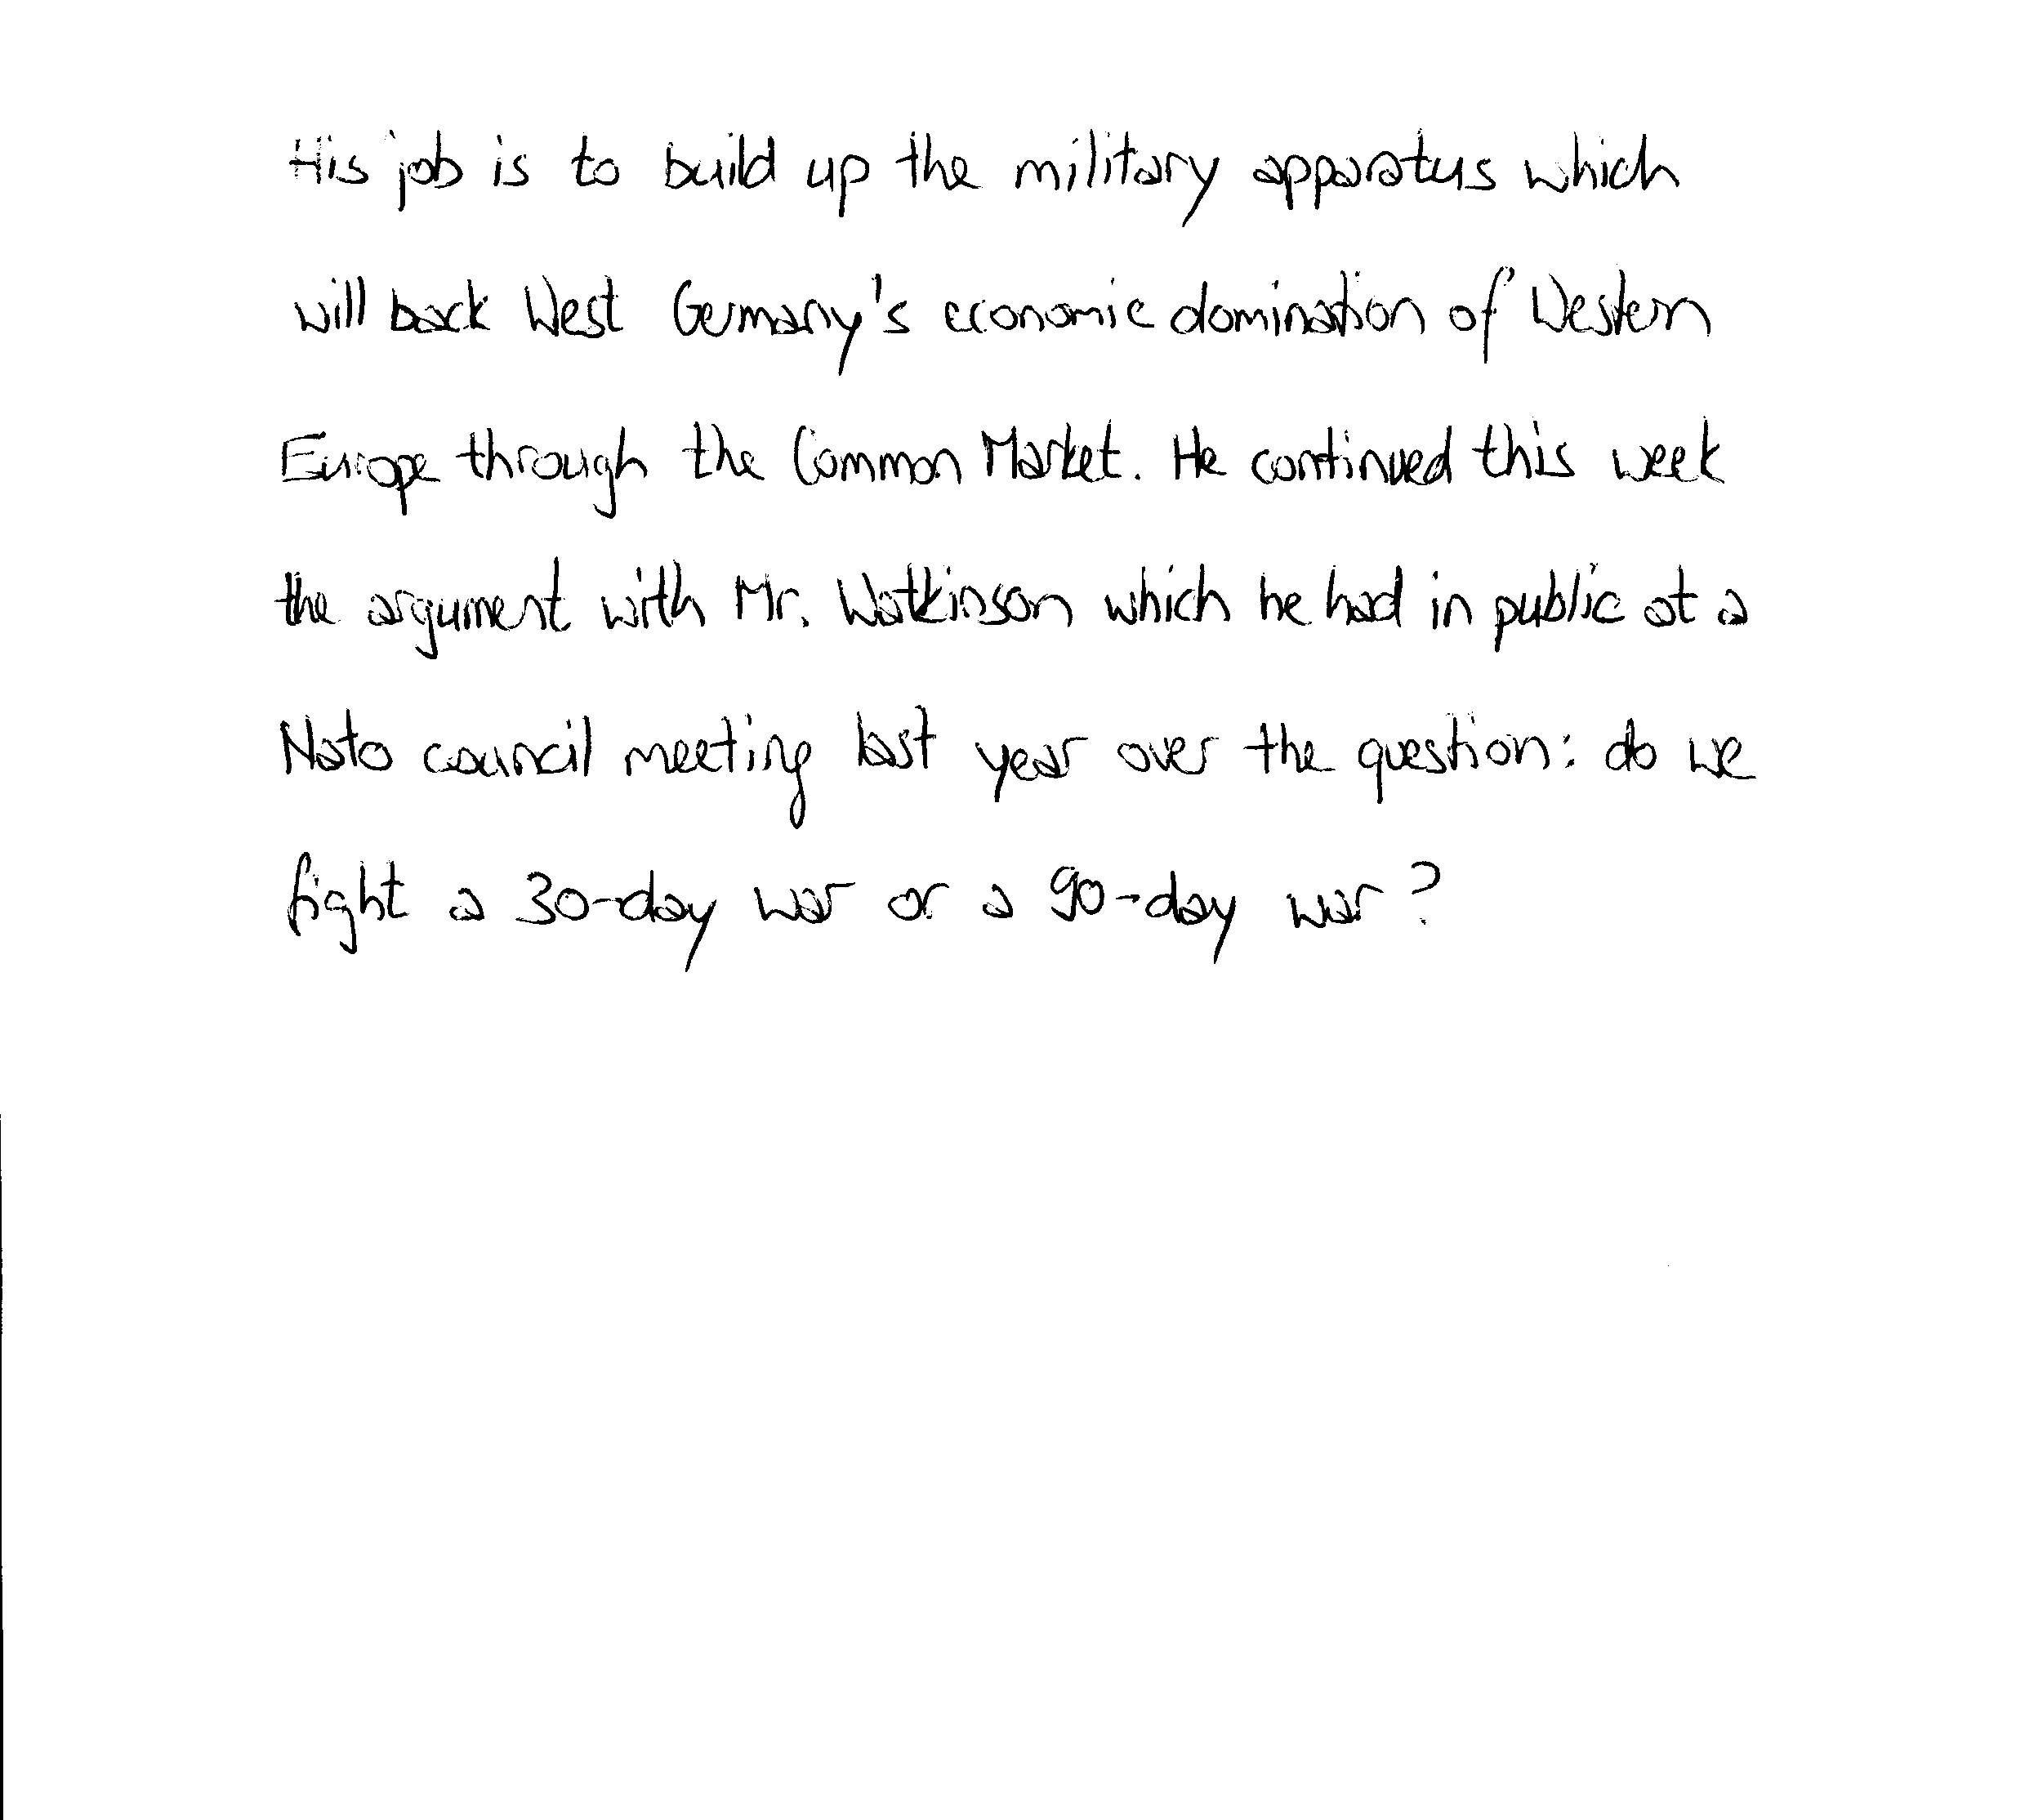 His job is to build up the military apparatus which
will back West Germany's economic domination of Western
Europe through the Common Market. He continued this week
the argument with Mr. Watkinson which he had in public at a
Nato council meeting last year over the question: do we
fight a 30-day war or a 90-day war?